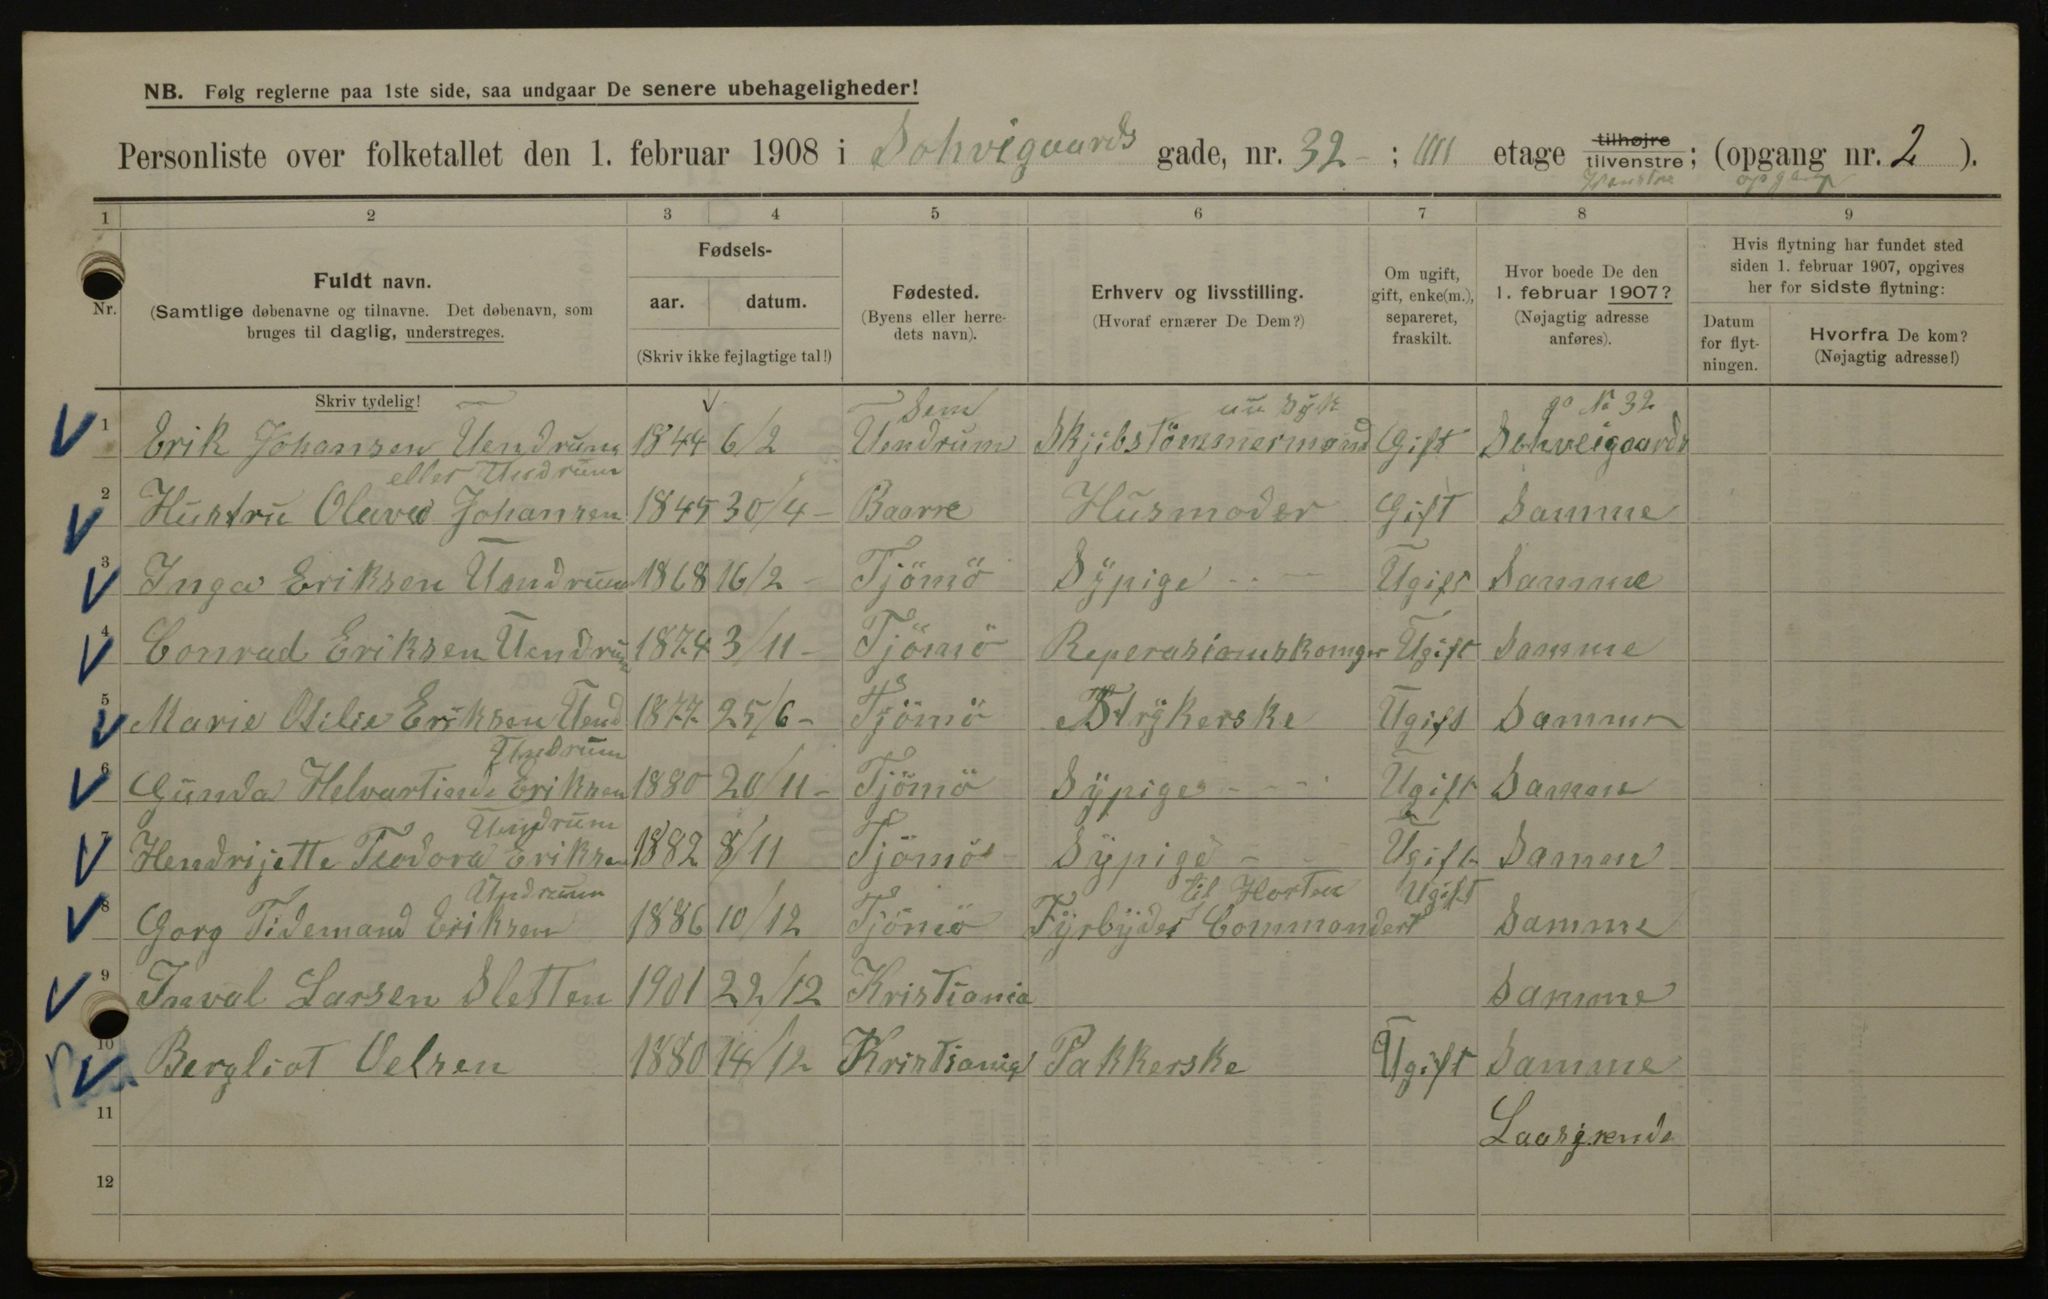 NB. Følg reglerne paa 1ste side, saa undgaar De senere ubehageligheder!
Personliste over folketallet den 1. februar 1908 i Sohveigaards gade, nr. 32 - ; IIII etage tilhøjre tilvenstre; (opgang nr. 2 ).
opgang
1 2 3 4 5 6 7 8 9
Nr. Fuldt navn. (Samtlige døbenavne og tilnavne. Det døbenavn, som bruges til daglig, understreges.
Fødsels- aar. datum. (Skriv ikke fejlagtige tal!)
Fødested. (Byens eller herredets navn).
Erhverv og livsstilling. (Hvoraf ernærer De Dem?)
Om ugift, gift, enke(m.), separeret, fraskilt.
Hvor boede De den 1. februar 1907? (Nøjagtig adresse anføres).
Hvis flytning har fundet sted siden 1. februar 1907, opgives her for sidste flytning:
Datum for flytningen. Hvorfra De kom? (Nøjagtig adresse!)
Skriv tydelig!
Sem nu Syk ga No 32
1 Erik Johansen Uendrum 1844 6/2 Uendrum Skjibstömmermand Gift Schveigaards
eller Undrum
2 Hustru Olava Johansen 1845 30/4 - Baarre Husmoder Gift Samme
3 Inga Eriksen Uendrum 1868 16/2 - Tjömö Sÿpige - - - Ugift Samme
4 Conrad Eriksen Uendrum 1874 3/11 - Tjömö Reperasionskonger Ugift Samme
5 Marie Otilie Eriksen Uend 1877 25/6 - Tjömö Strÿkerske Ugift Samme
Undrum
6 Gunda Helvartine Eriksen 1880 20/11 - Tjömö Sÿpige - - - Ugift Samme
Undrum
7 Hendrijette Teodora Eriksen 1882 8/11 Tjömö - Sÿpige - Ugift Samme
Undrum til Horten Ugift
8 Gorg Tidemand Eriksen 1886 10/12 Tjömö Fÿrbÿder Commandert Samme
9 Inval Larsen Sletten 1901 22/12 Kristiania Samme
10 Bergliot Oelsen 1880 14/12 Kristiania Pakkerske Ugift Samme
11 Laasjrende
12